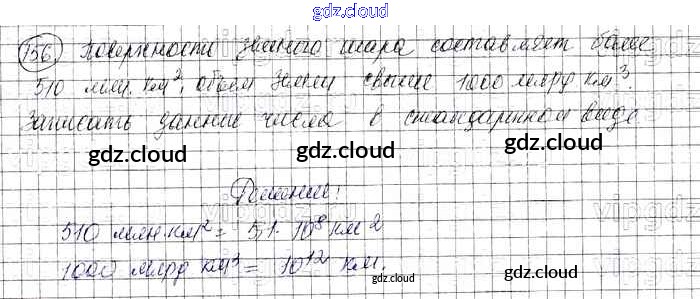 gdz.cloud
156. Поверхности земного шара составляет более
510 млн. км², объем Земли свыше 1000 млрд км³.
Записать данные числа в стандартном виде
gdz.cloud gdz.cloud gdz.cloud
Решение:
510 млн.км² = 5,1 · 10⁸ км 2
1000 млрд км³ = 10¹² км.
gdz.cloud
gdz.cloud gdz.cloud gdz.cloud